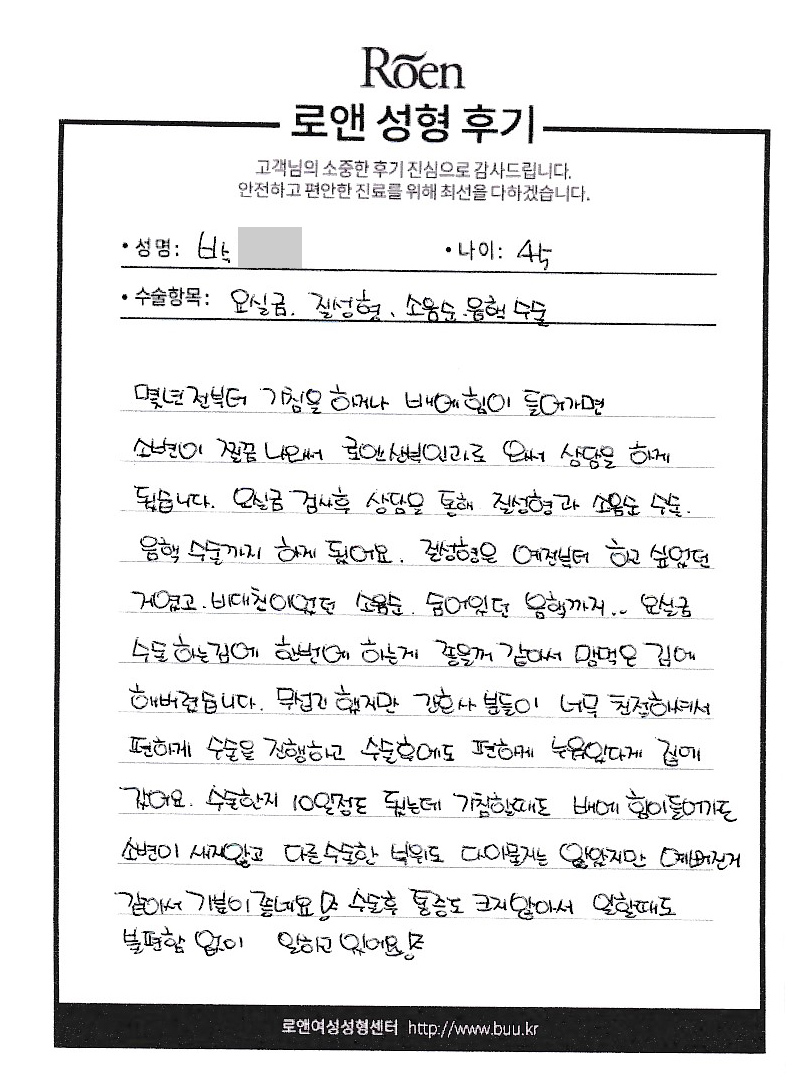 Rōen
로앤 성형 후기
고객님의 소중한 후기 진심으로 감사드립니다.
안전하고 편안한 진료를 위해 최선을 다하겠습니다.
• 성명: 박 • 나이: 45
• 수술항목: 요실금. 질성형. 소음순.음핵 수술
몇년전부터 기침을 하거나 배에힘이 들어가면
소변이 찔끔 나와서 로앤산부인과로 와서 상담을 하게
됬습니다. 요실금 검사후 상담을 통해 질성형과 소음순 수술.
음핵 수술까지 하게 됬어요. 질성형은 예전부터 하고 싶었던
게였고. 비대칭이였던 소음순. 숨어있던 음핵까지.. 요실금
수술하는김에 한번에 하는게 좋을꺼 같아서 맘먹은 김에
해버렸습니다. 무섭긴 했지만 간호사 분들이 너무 친절하셔서
편하게 수술을 진행하고 수술후에도 편하게 누워있다게 집에
갔어요. 수술한지 10일정도 됬는데 기침할때도 배에 힘이들어가도
소변이 새지않고 다른수술한 부위도 다아물지는 않았지만 예뻐진거
같아서 기분이좋네요 수술후 통증도 크지않아서 일할때도
불편함 없이 일하고 있어요
로앤여성성형센터 http://www.buu.kr